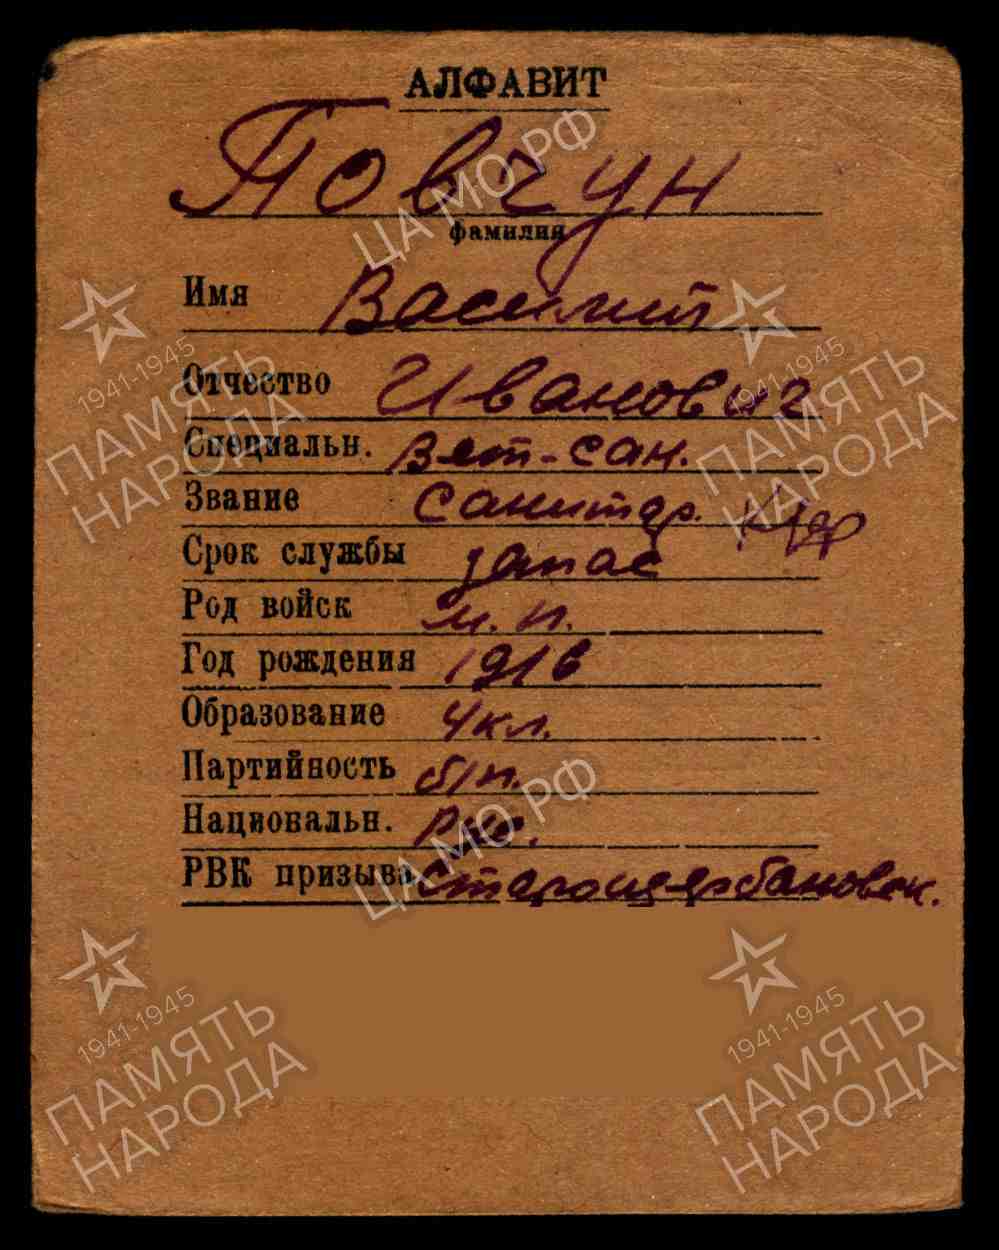 АЛФАВИТ
Повчун
фамилия
Имя Василий
Отчество Иванович
Специальн. Вет-сан.
Звание Санитар.
Срок службы запас
Род войск м. п.
Год рождения 1916
Образование 4 кл.
Партийность б/п.
Национальн. Рус.
РВК призыва Старощербановск.
ЦА МО РФ
1941-1945
ПАМЯТЬ
НАРОДА
1941-1945
ПАМЯТЬ
НАРОДА
ЦА МО РФ
1941-1945
ПАМЯТЬ
НАРОДА
1941-1945
ПАМЯТЬ
НАРОДА